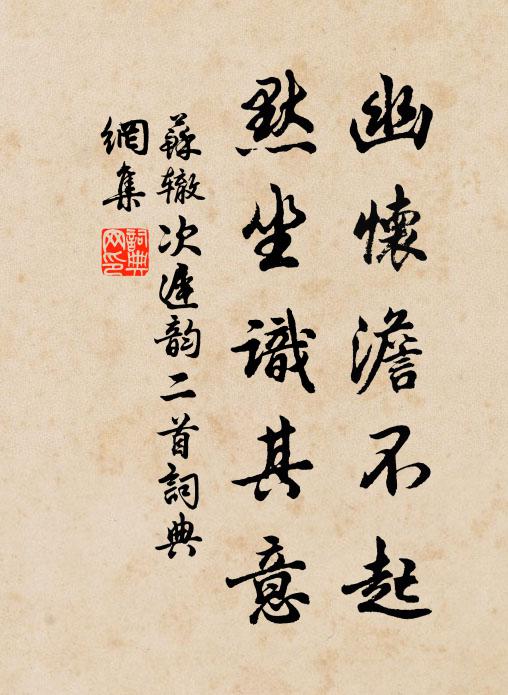 幽懷澹不起
默坐識其意
蘇辙次遲韵二首詞典
網集
詞典
网印